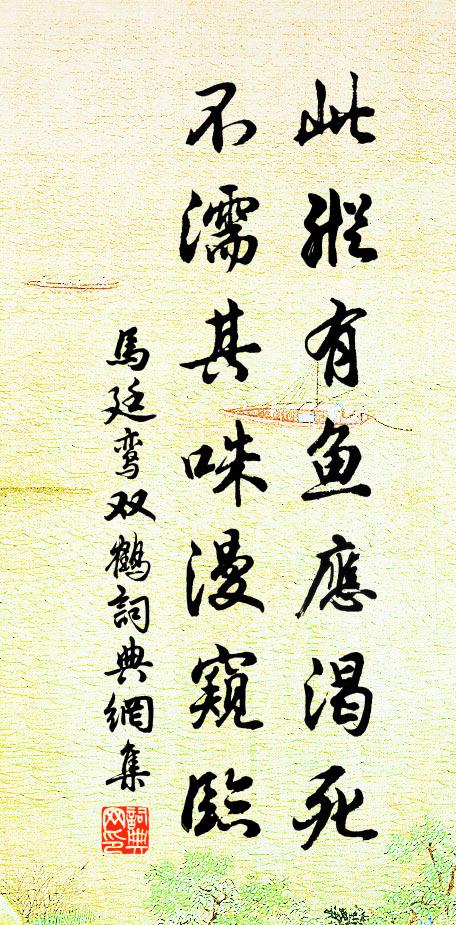 此纵有鱼應渴死
不濡其咮漫窺臨
馬廷鸾双鶴詞典網集
詞典网印